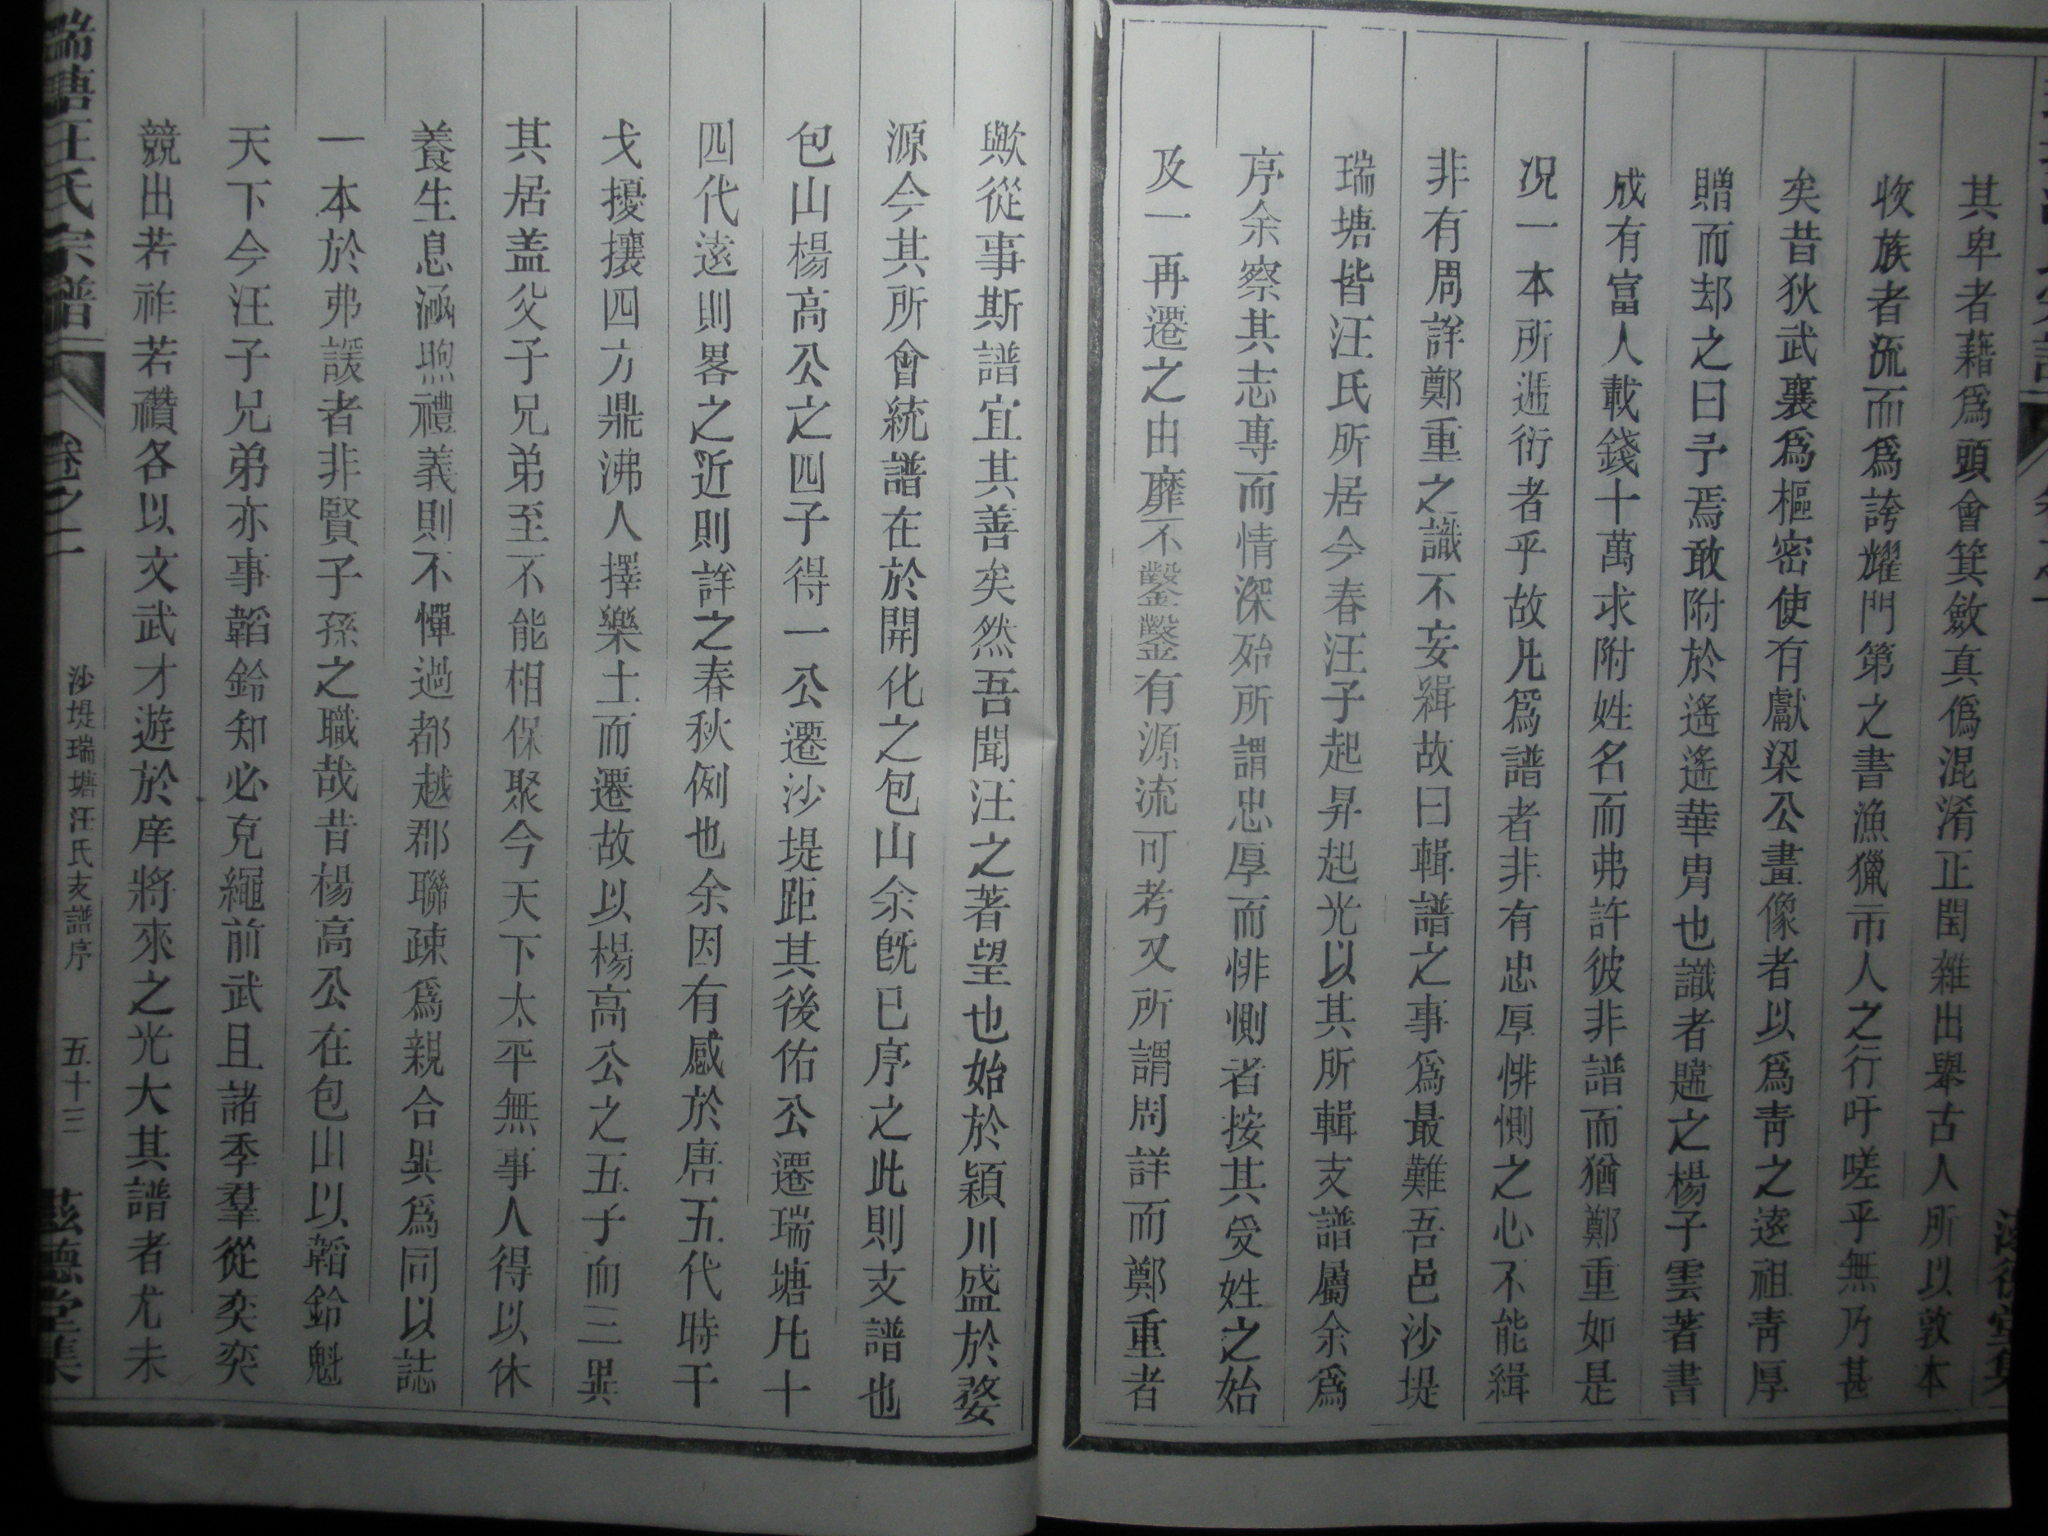 其卑者藉爲頭會箕斂真僞混淆正閏雜出舉古人所以敦本
收族者流而爲誇耀門第之書漁獵市人之行吁嗟乎無乃甚
矣昔狄武襄爲樞密使有獻梁公畫像者以爲青之遠祖青厚
贈而却之曰予焉敢附於遙遙華冑也識者韙之楊子雲著書
成有富人載錢十萬求附姓名而弗許彼非譜而猶鄭重如是
况一本所遞衍者乎故凡爲譜者非有忠厚悱惻之心不能緝
非有周詳鄭重之識不妄緝故曰輯譜之事爲最難吾邑沙堤
瑞塘皆汪氏所居今春汪子起昇起光以其所輯支譜屬余爲
序余察其志專而情深殆所謂忠厚而悱惻者按其受姓之始
及一再遷之由靡不鑿鑿有源流可考又所謂周詳而鄭重者
歟從事斯譜宜其善矣然吾聞汪之著望也始於潁川盛於婺
源今其所會統譜在於開化之包山余旣已序之此則支譜也
包山楊高公之四子得一公遷沙堤距其後佑公遷瑞塘凡十
四代遠則畧之近則詳之春秋例也余因有感於唐五代時干
戈擾攘四方鼎沸人擇樂土而遷故以楊高公之五子而三異
其居盖父子兄弟至不能相保聚今天下太平無事人得以休
養生息涵煦禮義則不憚過都越郡聯疎爲親合異爲同以誌
一本於弗諼者非賢子孫之職哉昔楊高公在包山以韜鈴魁
天下今汪子兄弟亦事韜鈴知必克繩前武且諸季羣從奕奕
競出若祚若禶各以文武才遊於庠將來之光大其譜者尤未
瑞塘汪氏宗譜 卷之一 沙堤瑞塘汪氏支譜序 五十三 德堂集